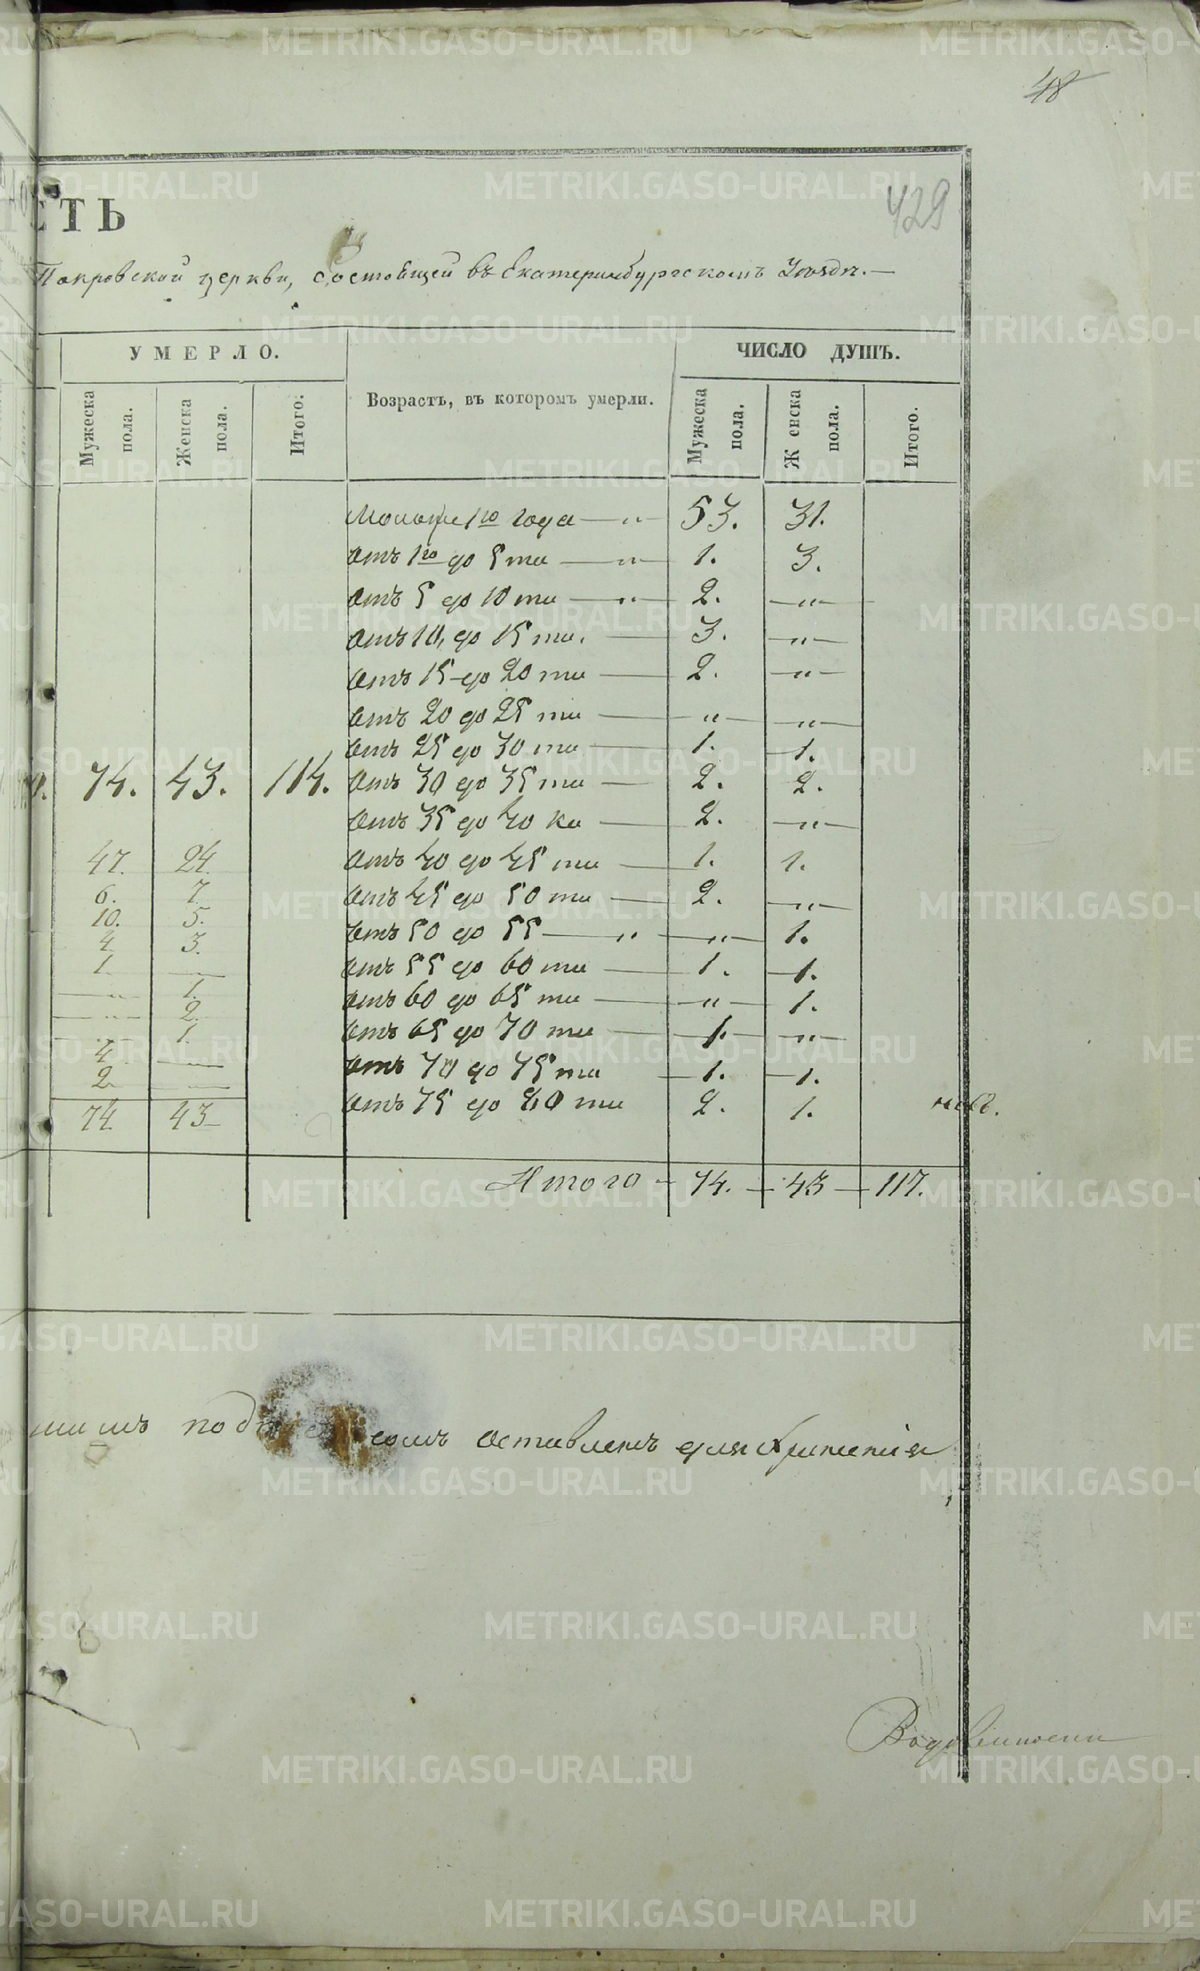 48
429
СТЬ
Покровской церкви, состоящей въ Екатеринбургскомъ Уѣздѣ.—
УМЕРЛО.
ЧИСЛО ДУШЪ.
Мужеска пола.
Женска пола.
Итого.
Возрастъ, въ которомъ умерли.
Мужеска пола.
Женска пола.
Итого.
Моложе 1го года — „ — 53. 31.
Отъ 1го до 5ти — „ — 1. 3.
Отъ 5 до 10ти — „ — 2. — „ —
Отъ 10, до 15ти. — 3. — „ —
Отъ 15 до 20ти — 2. — „ —
Отъ 20 до 25ти — „ — „ —
Отъ 25 до 30ти — 1. — 1.
74. 43. 114. Отъ 30 до 35ти — 2. 2.
Отъ 35 до 40ка — 2. — „ —
47. 24. Отъ 40 до 45ти — 1. 1.
6. 7. Отъ 45 до 50ти — 2. — „ —
10. 5. Отъ 50 до 55 — „ — „ — 1.
4. 3.
1. — Отъ 55 до 60ти — 1. — 1.
— „ — 1. Отъ 60 до 65ти — „ — 1.
— „ — 2.
— 1. Отъ 65 до 70ти — 1. — „ —
4. — Отъ 70 до 75ти — 1. — 1.
2. — Отъ 75 до 80ти 2. 1.
74. 43
Итого — 74. — 43 — 117.
оставленъ для храненія